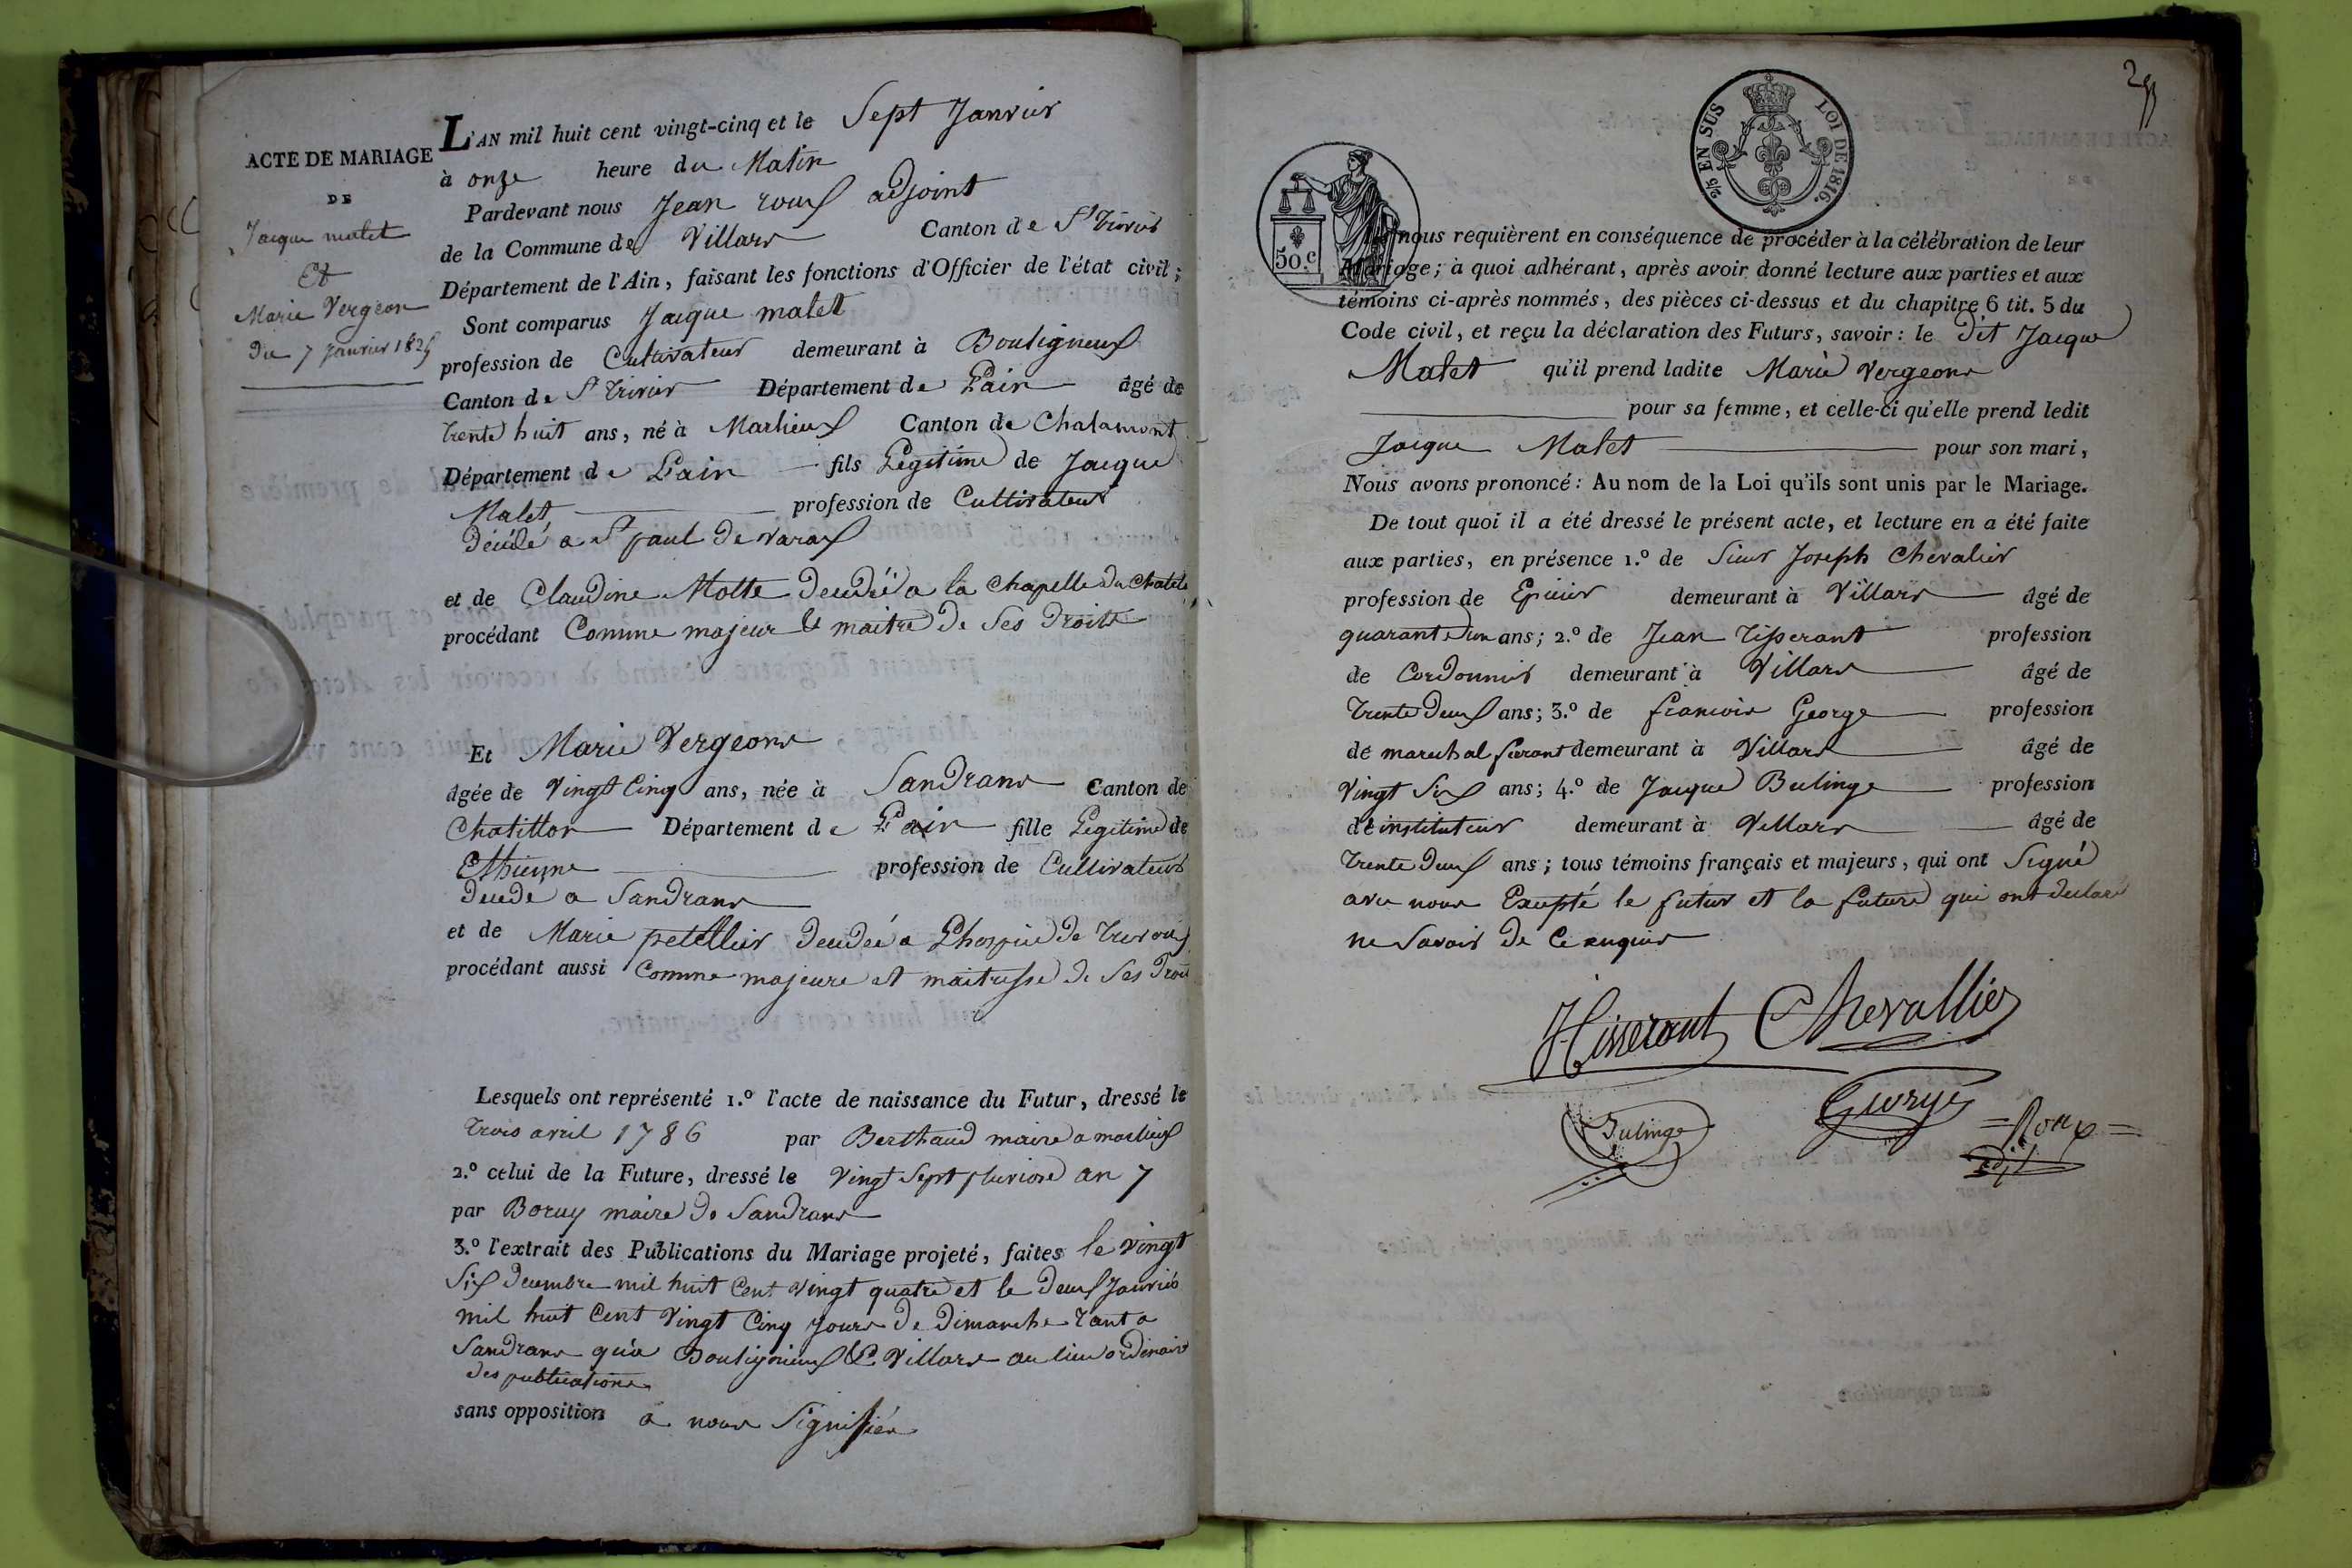 ACTE DE MARIAGE
DE
Jacque malet
Et
Marie Vergeon
Du 7 janvier 1825
L'AN mil huit cent vingt-cinq et le Sept Janvier
à onze heure du Matin
Pardevant nous Jean roux adjoint
de la Commune de Villars Canton de St Trivier
Département de l'Ain, faisant les fonctions d'Officier de l'état civil;
Sont comparus Jacque malet
profession de Cultivateur demeurant à Bouligneux
Canton de St Trivier Département de L'ain âgé de
trente huit ans, né à Marlieux Canton de Chalamont
Département de L'ain fils Legitime de Jacque
Malet profession de Cultivateur
décédé a St paul de varax
et de Claudine Motte decedée a la Chapelle du Chatel
procédant Comme majeur Et maitre De Ses Droits
Et Marie Vergeons
âgée de Vingt Cinq ans, née à Sandrans Canton de
Chatillon Département de L'ain fille Legitime de
Ethienne profession de Cultivateur
decede a Sandrans
et de Marie petellier decedée a L'hospice de Trevoux
procédant aussi Comme majeure et maitresse de Ses Droit
Lesquels ont représenté 1.º l'acte de naissance du Futur, dressé le
trois avril 1786 par Berthaud maire a marlieux
2.º celui de la Future, dressé le Vingt Sept pluviose an 7
par Boruy maire De Sandrans
3.º l'extrait des Publications du Mariage projeté, faites le vingt
Six decembre mil huit Cent vingt quatre et le deux Janvier
mil huit Cent Vingt Cinq jours De Dimanche tant a
Sandrans qu'a Bouligneux Et Villars au lieu ordinaire
des publications
sans opposition a nous Signifiée
29
2/5 EN SUS LOI DE 1816.
50.c
nous requièrent en conséquence de procéder à la célébration de leur
Mariage; à quoi adhérant, après avoir donné lecture aux parties et aux
témoins ci-après nommés, des pièces ci-dessus et du chapitre 6 tit. 5 du
Code civil, et reçu la déclaration des Futurs, savoir: le dit Jacque
Malet qu'il prend ladite Marie Vergeons
pour sa femme, et celle-ci qu'elle prend ledit
Jacque Malet pour son mari,
Nous avons prononcé: Au nom de la Loi qu'ils sont unis par le Mariage.
De tout quoi il a été dressé le présent acte, et lecture en a été faite
aux parties, en présence 1.º de Sieur Joseph Chevalier
profession de Epicier demeurant à Villars âgé de
quarante un ans; 2.º de Jean Tisserant profession
de Cordonnier demeurant à Villars âgé de
trente deux ans; 3.º de francois George profession
de marechal ferant demeurant à Villars âgé de
Vingt Six ans; 4.º de Jacque Bulinge profession
de instituteur demeurant à Villars âgé de
trente deux ans; tous témoins français et majeurs, qui ont Signé
avec nous Excepté le futur et la future qui ont declaré
ne Savoir de Ce enquis
Tisserant Chevallier
Bulinge George = Roux =
adj